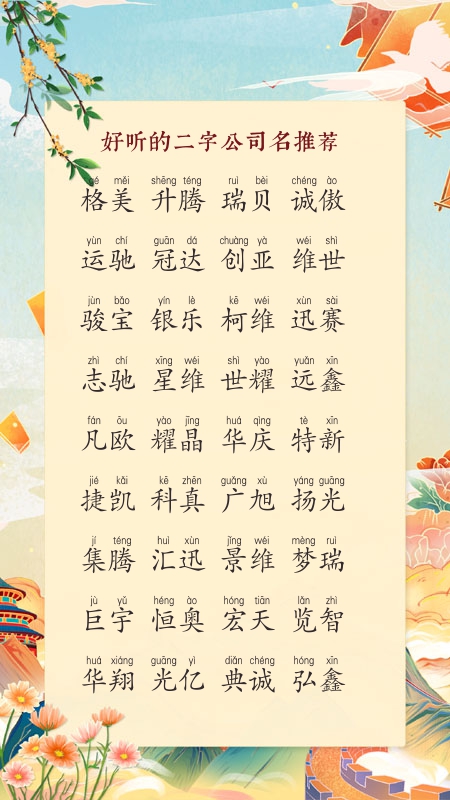 好听的二字公司名推荐
gé měi shēng téng ruì bèi chéng ào
格美 升腾 瑞贝 诚傲
yùn chí guān dá chuàng yà wéi shì
运驰 冠达 创亚 维世
jùn bǎo yín lè kē wéi xùn sài
骏宝 银乐 柯维 迅赛
zhì chí xīng wéi shì yào yuǎn xīn
志驰 星维 世耀 远鑫
fán ōu yào jīng huá qìng tè xīn
凡欧 耀晶 华庆 特新
jié kǎi kē zhēn guǎng xù yáng guāng
捷凯 科真 广旭 扬光
jí téng huì xùn jǐng wéi mèng ruì
集腾 汇迅 景维 梦瑞
jù yǔ héng ào hóng tiān lǎn zhì
巨宇 恒奥 宏天 览智
huá xiáng guāng yì diǎn chéng hóng xīn
华翔 光亿 典诚 弘鑫